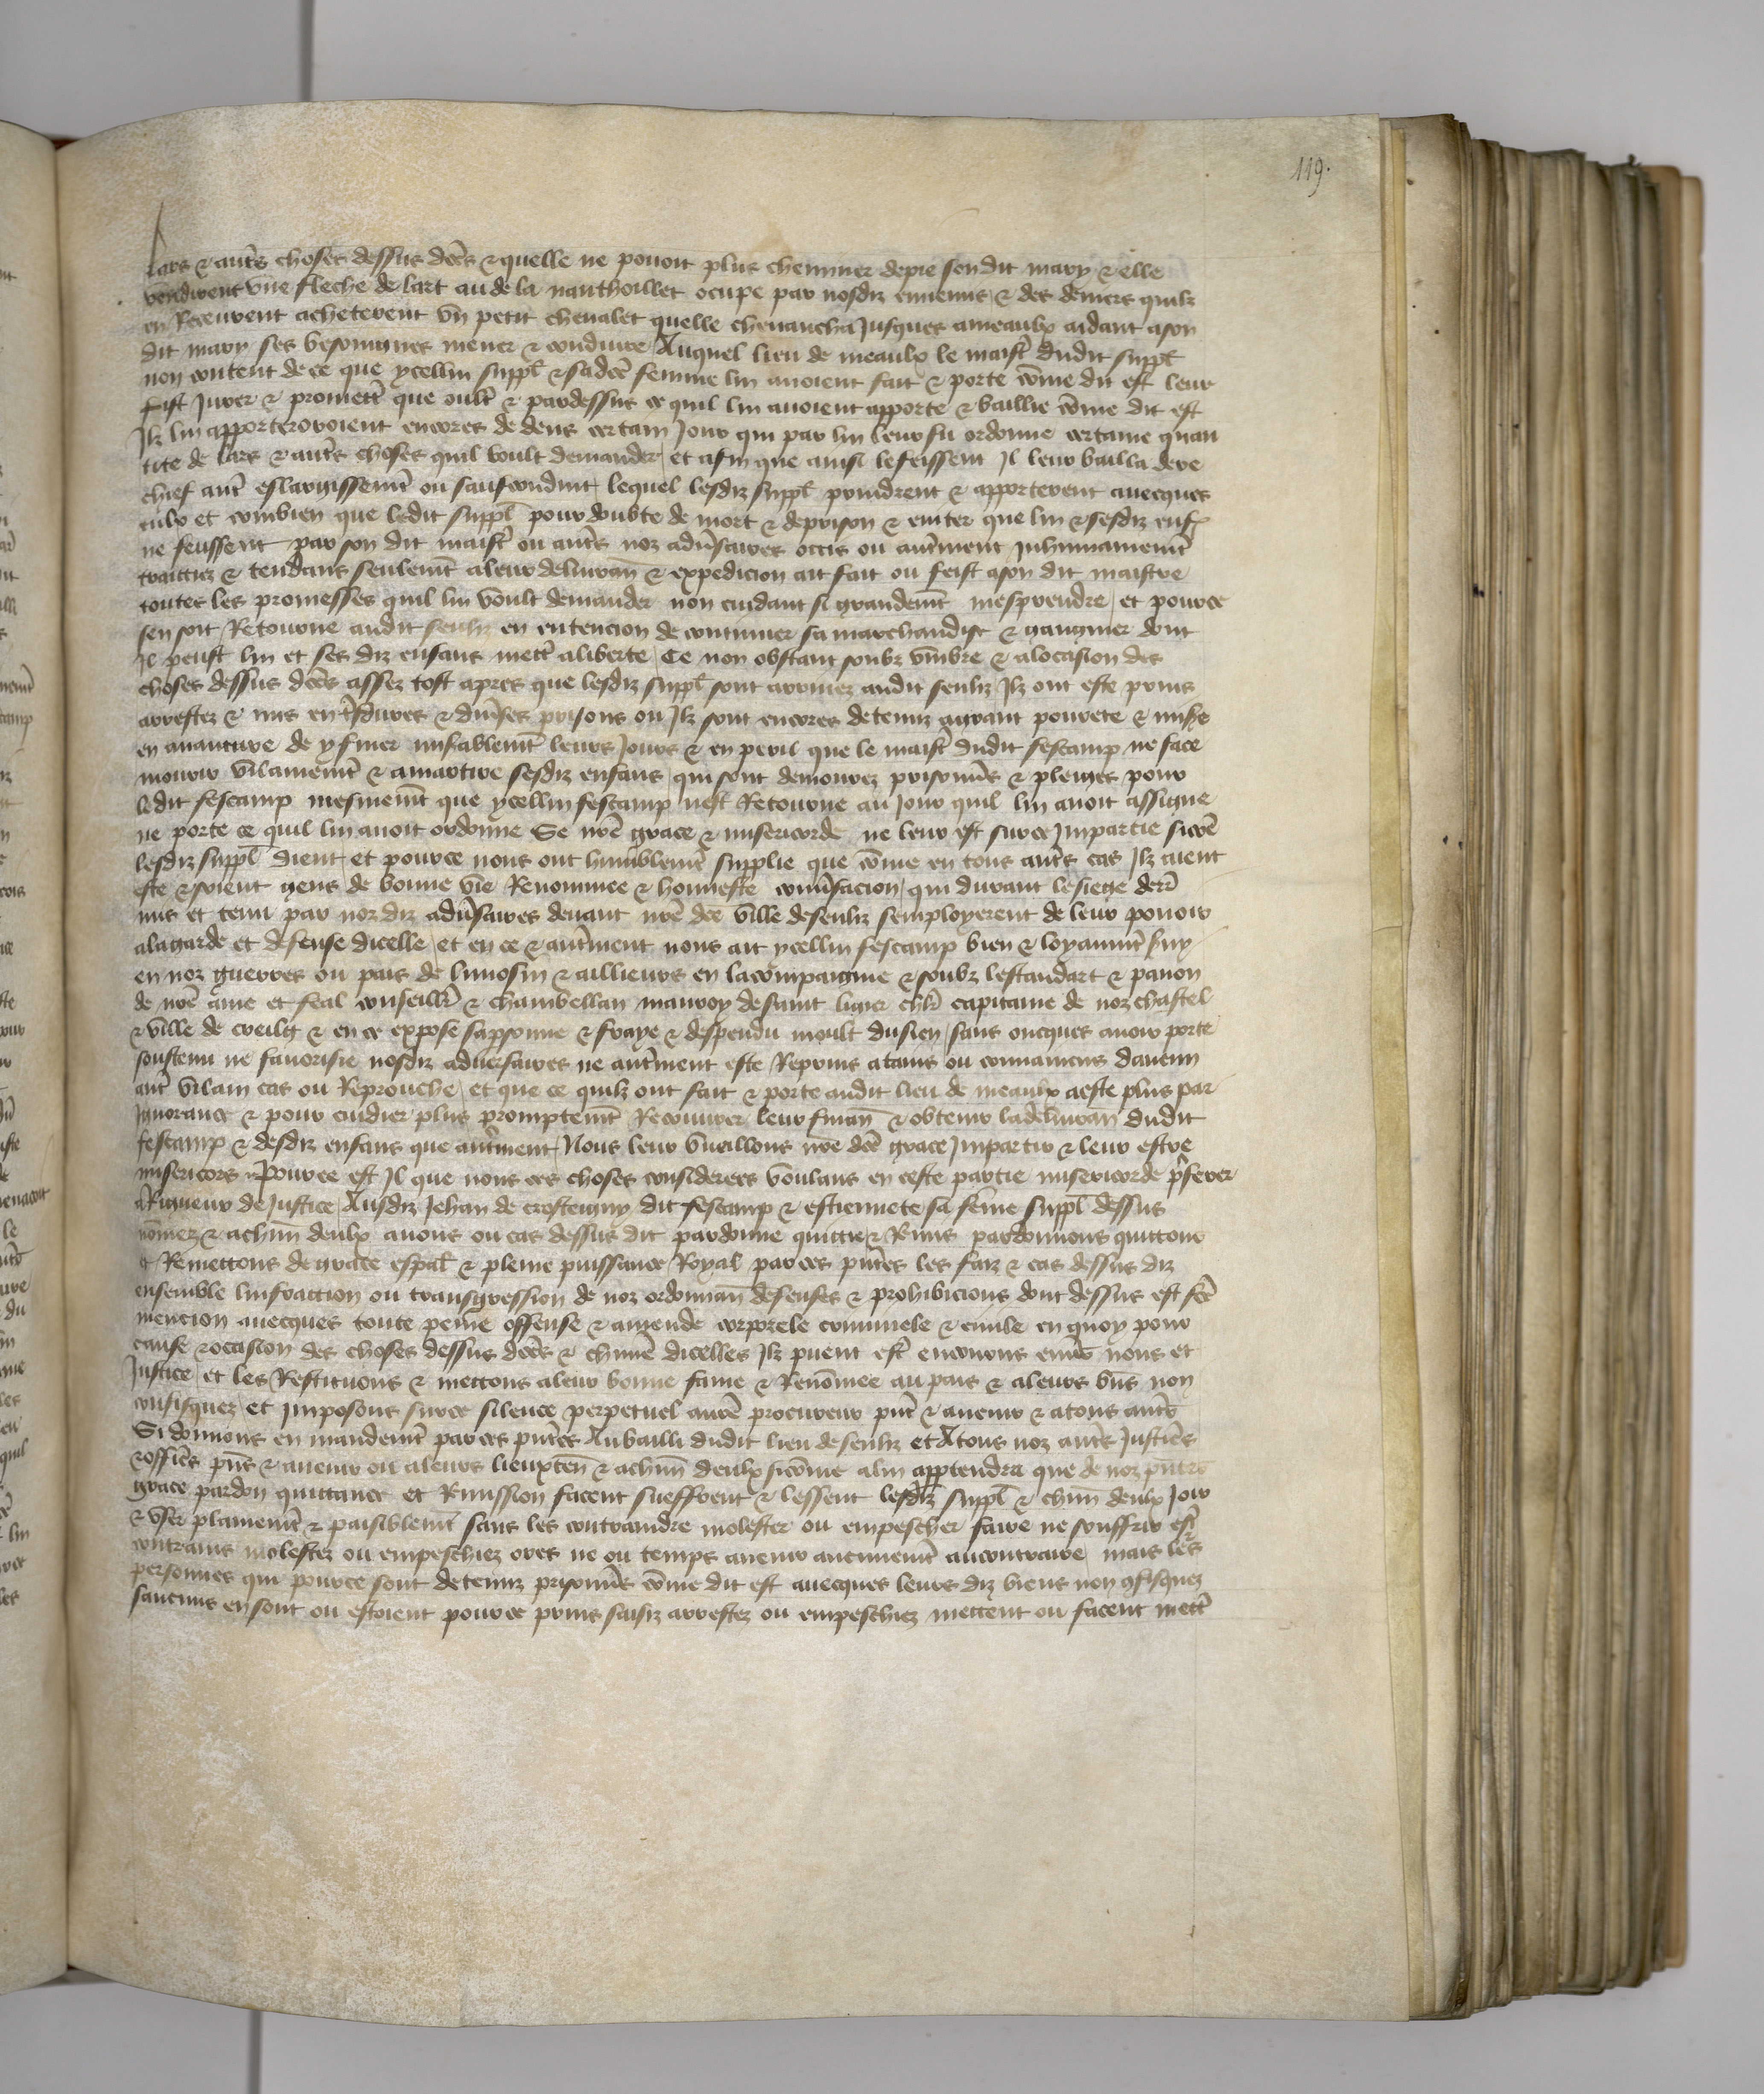 119.
lars & autẽs choses dessus dẽes & quelle ne pouoit plus cheminer de pie sondit mary & elle
vendirent vne fleche de lart au de la nanthoillet ocupe par nosdiz ennemis & des deniers quilz
en Receurent acheterent vn petit cheualet quelle cheuaucha Jusques ameaulx aidant ason
dit mary ses besoingnes mener & conduire Auquel lieu de meaulx le maistr̃ dudit suppl̃
non content de ce que ycellui suppl̃ & sadcẽ femme lui auoient fait & porte cõme dit est leur
fist Jurer & promettr̃ que oultr̃ & pardessus ce quil lui auoient apporte & baillie cõme dit est
Ilz lui apporteroient encores dedens certain Jour qui par lui leur fu ordonne certaine quan
tite de lars & autr̃s choses quil voult demander et afin que ainsi le feissent Il leur bailla dere
chief autr̃ eslargissemt̃ ou saufconduit lequel lesdiz suppl̃ prindrent & apporterent auecques
eulx et combien que ledit suppl̃ pour doubte de mort & deprison & euiter que lui & sesdiz enf̃
ne feussent par son dit maistr̃ ou autr̃s noz adũsaires occis ou autr̃ment Inhumainemt̃
traittiez & tendans seulemt̃ aleur deliuran̄ & expedicion ait fait ou feist ason dit maistre
toutes les promesses quil lui voult demander non cuidant si grandemt̃ mesprendre et pource
sen soit Retourne audit senliz en entencion de continuer sa marchandise & gaigner dont
Il peust lui et ses diz enfans mettr̃ aliberte Ce non obstant soubz vmbre & alocasion des
choses dessus dcẽs assez tost apres que lesdiz suppl̃ sont arriuez audit senliz Ilz ont este prins
arrestez & mis en tr̃sdures & diũses prisons ou Ilz sont encores detenuz agrant pourete & mise
en auanture de y finer misablemt̃ leurs Jours & en peril que le maistr̃ dudit fescamp ne face
mourir vilainemt̃ & amartire sesdiz enfans qui sont demourez prisonñs & pleiges pour
ledit fescamp mesmemt̃ que ycellui fescamp nest Retourne au Jour quil lui auoit assigne
ne porte ce quil lui auoit ordonne Se nr̃e grace & misericorde ne leur est surce Impartie sicõe
lesdiz suppl̃ dient et pource nous ont humblemt̃ supplie que cõme en tous autr̃s cas Ilz aient
este & soient gens de bonne vie Renommee & honneste conũsacion qui durant le siege derr̃
mis et tenu par noz diz adũsaires deuant nr̃e dcẽ ville de senliz semployerent de leur pouoir
alagarde et defense dicelle et en ce & autr̃ment nous ait ycellui fescamp bien & loyaumt̃ seruy
en noz guerres ou pais de limosin & aillieurs en lacompaignie & soubz lestandart & panon
de nr̃e ame et feal conseillr̃ & chambellan mauroy de saint ligier chlr̃ capitaine de noz chastel
& ville de creilg & en ce expose sa personne & fraye & despendu moult dusien sans oncques auoir porte
soustenu ne fauorisie nosdiz aduersaires ne autr̃ment este Reprins atains ou conuaincus daucun
autr̃ vilain cas ou Reprouche et que ce quilz ont fait & porte audit lieu de meaulx aeste plus par
Ignorance & pour cuidier plus promptemt̃ Recouurer leur finan̄ & obtenir ladeliuran̄ dudit
fescamp & desdiz enfans que autr̃ment Nous leur vueillons nr̃e dcẽ grace Impartir & leur estre
misericors Pource est Il que nous ces choses considerees voulans en ceste partie misericorde p̃ferer
aRigueur de Justice Ausdiz Jehan de crosteigny dit fescamp & estiennete sa fẽme suppl̃ dessus
nõmez & achũn deulx auons ou cas dessus dit pardonne quittie & Remis pardonnons quittons
& Remettons de grace espal̃ & pleine puissance Royal par ces pñtes les faiz & cas dessus diz
ensemble linfraction ou transgression de noz ordonnan̄ defenses & prohibicions dont dessus est fcẽ
mencion auecques toute peine offense & amende corporele criminele & ciuile en quoy pour
cause & occasion des choses dessus dcẽs & chũne dicelles Ilz puent estr̃ encourus enuers nous et
Justice et les Restituons & mettons aleur bonne fame & Renõmee au pais & aleurs biẽs non
confisquez et Imposons surce silence perpetuel anr̃e procureur pñt & auenir & atous autr̃s
Si donnons en mandemt̃ par ces pñtes Au bailli dudit lieu de senliz et Atous noz autr̃s Justicr̃s
& officr̃s pñs & auenir ou aleurs lieuxten̄ & achũn deulx sicõme alui apptendra que de noz pñtes
grace pardon quittance et Remission facent sueffrent & lessent lesdiz suppl̃ & chũn deulx Joir
& vser plainemt̃ & paisiblemt̃ sans les contraindre molester ou empescher faire ne souffrir estr̃
contrains molestez ou empeschiez ores ne ou temps auenir aucunemt̃ aucontraire mais les
personnes qui pource sont detenuz prisonñs cõme dit est auecques leurs diz biens non 9fisquez
saucuns en sont ou estoient pource prins saisiz arrestez ou empeschiez mettent ou facent mettr̃